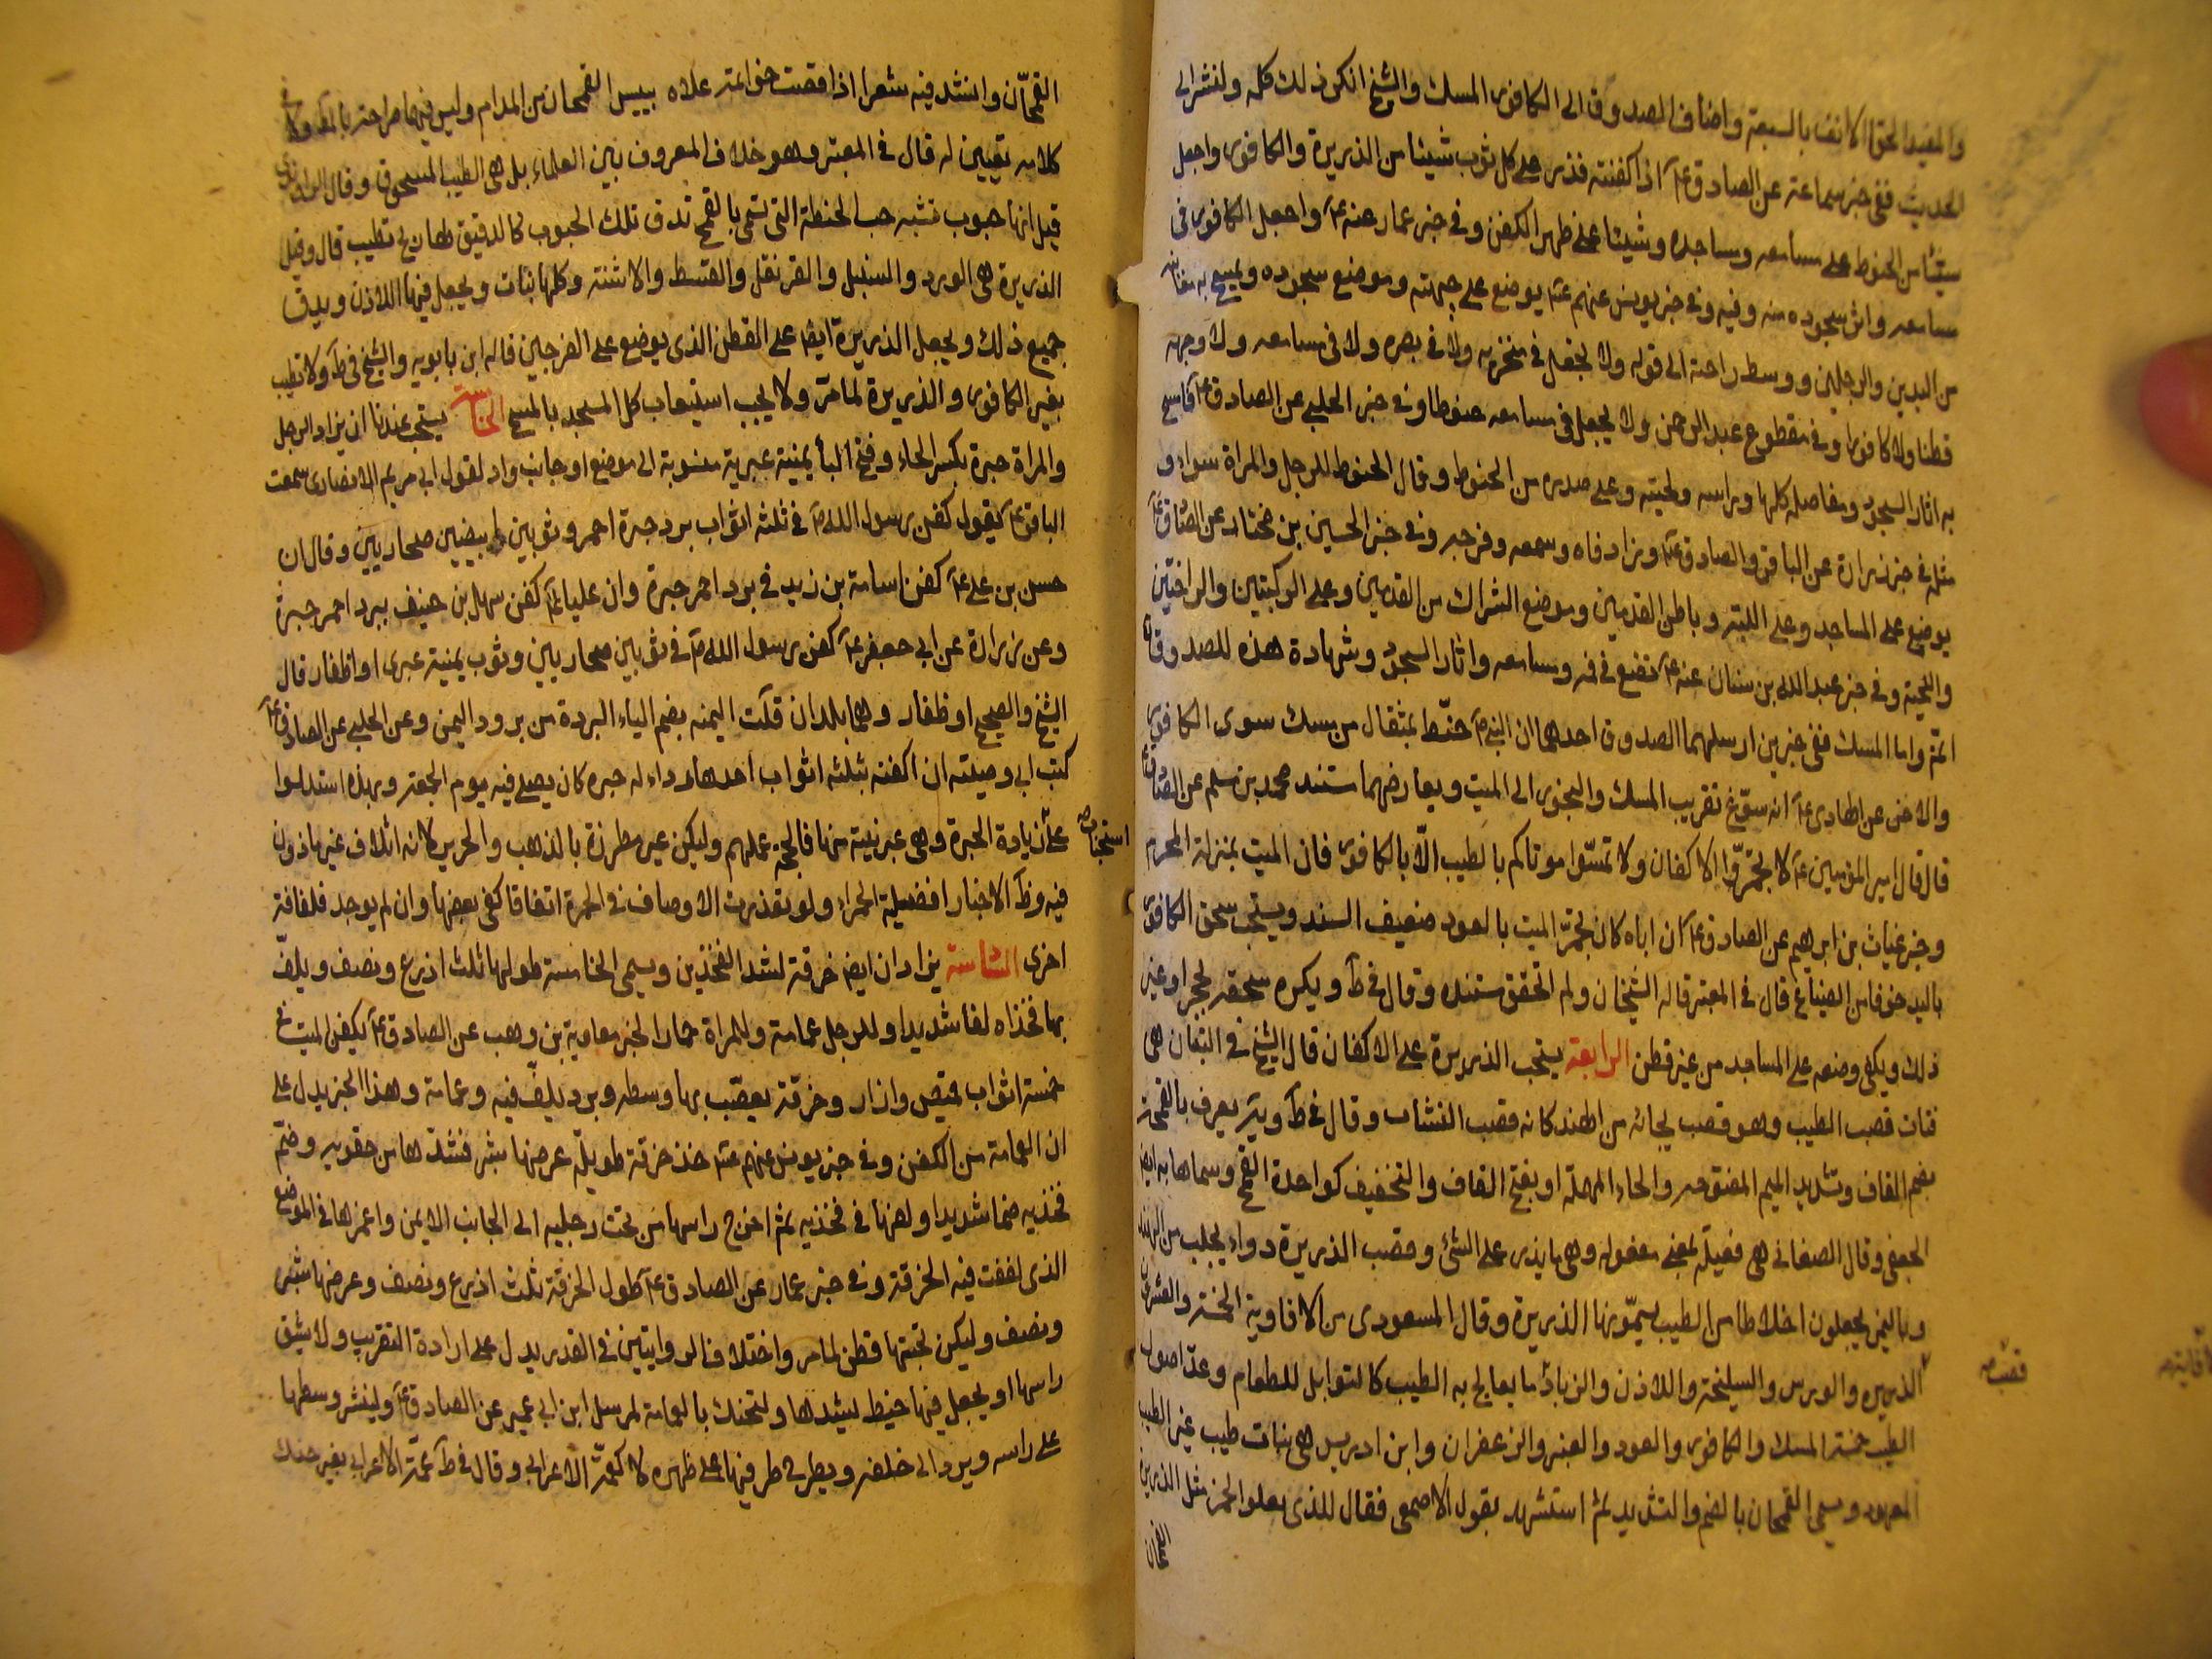 والمفيد الحق الانف بالسبعة واضاف الصدوق الى الكافور المسك والشيخ انكر ذلك كله ولنشر الى
الحديث ففى خبر سماعة عن الصادق ع اذا كفنته فذر على كل ثوب شيئا من الذريرة والكافور واجعل
شيئا من الحنوط على مسامعه ومساجده وشيئا على ظهر الكفن وفى خبر عمار عنه ع واجعل الكافور فى
مسامعه واثر سجوده منه وفيه وفى خبر يونس عنهم ع يوضع على جبهته وموضع سجوده ويمسح به مغابنه
من اليدين والرجلين ووسط راحته الى قوله ولا يجعل فى منخريه ولا فى بصره ولا فى مسامعه ولا وجهه
قطنا ولا كافورا وفى مقطوع عبد الرحمن ولا يجعل فى مسامعه حنوطا وفى خبر الحلبى عن الصادق ع فامسح
به اثار السجود ومفاصله كلها وراسه ولحيته وعلى صدره من الحنوط وقال الحنوط للرجل والمراة سواء و
مثله فى خبر زرارة عن الباقر والصادق ع وزاد فاه وسمعه وفرجه وفى خبر الحسين بن مختار عن الصادق ع
يوضع على المساجد وعلى اللبة وباطن القدمين وموضع الشراك من القدمين وعلى الركبتين والراحتين
واللحية وفى خبر عبد الله بن سنان عنه ع تضع فى فمه ومسامعه واثار السجود وشهادة هذه للصدوق
اتم واما المسك ففى خبرين ارسلهما الصدوق احدهما ان النبى ص حنط بمثقال من مسك سوى الكافور
والاخر عن الهادى ع انه سوغ تقريب المسك والبخور الى الميت ويعارضهما مسند محمد بن مسلم عن الصادق ع
قال قال امير المؤمنين ع لا تجمروا الاكفان ولا تمسوا موتاكم بالطيب الا بالكافور فان الميت بمنزلة المحرم
وخبر غياث بن ابرهيم عن الصادق ع ان اباه كان يجمر الميت بالعود ضعيف السند ويستحب سحق الكافور
باليد خوفا من الضياع قال فى المعتبر قاله الشيخان ولم اتحقق مستنده وقال فى ط ويكره سحقه بحجر او غير
ذلك ويكفى وضعه على المساجد من غير قطن الرابعة يستحب الذريرة على الاكفان قال الشيخ فى التبيان هى
فتات قصب الطيب وهو قصب يجاء به من الهند كانه قصب النشاب وقال فى ط ويه يعرف بالقمحة
بضم القاف وتشديد الميم المفتوحه والحاء المهملة او بفتح القاف والتخفيف كواحدة القمح وسماها به ايضا
الجعفى وقال الصغانى هى فعيلة بمعنى مفعوله وهى ما يذر على الشئ وقصب الذريرة دواء يجلب من الهند
وباليمن يجعلون اخلاطا من الطيب يسمونها الذريرة وقال المسعودى من الافاوية الخمسة والعشرين
الذريره والورس والسليخة واللاذن والزباد ما يعالج به الطيب كالتوابل للطعام وعد اصول
الطيب خمسة المسك والكافور والعود والعنبر والزعفران وابن ادريس هى نبات طيب غير الطيب
المعهود ويسمى القمحان بالضم والتشديد ثم استشهد بقول الاصمعى فقال للذى يعلو الخمر مثل الذريرة
القمحان
قصبه
القمحان وانشد فيه شعرا اذا فضت خواتمه علاه يبيس القمحان من المدام وليس فيها صراحة بالمط ولا فى
كلامه تعيين له قال فى المعتبر وهو خلاف المعروف بين العلماء بل هى الطيب المسحوق وقال الراوندى
قيل انها حبوب تشبه حب الحنطة التى تسمى بالقمح تدق تلك الحبوب كالدقيق لها ريح تطيب قال وقيل
الذريرة هى الورد والسنبل والقرنفل والقسط والاشنة وكلها نبات ويجعل فيها اللاذن ويدق
جميع ذلك ويجعل الذريرة ايض على القطن الذى يوضع على الفرجين قاله ابن بابويه والشيخ فى ط ولا تطيب
بغير الكافور والذريرة لما مر ولا يجب استيعاب كل المسجد بالمسح الخامسة يستحب عندنا ان يزاد الرجل
والمراة حبرة بكسر الحاء وفتح الباء يمنية عبرية منسوبة الى موضع او جانب واد لقول ابى مريم الانصارى سمعت
الباقر ع يقول كفن رسول الله ص فى ثلثه اثواب برد حبرة احمر وثوبين ابيضين صحاريين وقال ان
حسن بن على ع كفن اسامة بن زيد فى برد احمر حبرة وان عليا ع كفن سهل بن حنيف ببرد احمر حبرة
وعن زرارة عن ابى جعفر ع كفن رسول الله ص فى ثوبين صحاريين وثوب يمنية عبرى او اظفار قال
الشيخ والصحيح او ظفار وهما بلدان قلت اليمنه بضم الياء البردة من برود اليمن وعن الحلبى عن الصادق ع
كتب ابى وصيته ان اكفنه بثلثه اثواب احدها رداء له حبره كان يصلى فيه يوم الجمعة وبهذه استدلوا
على زيادة الحبرة وهى غير بينة منها فالحجة عملهم وليكن غير مطرزة بالذهب والحرير كانه اتلاف غير ماذون
استحباب
فيه وظ الاخبار افضلية الحمراء ولو تعذرت الاوصاف فى الحمرة اتفاقا كفى بعضها وان لم يوجد فلفافة
اخرى السادسة يزادان ايض خرقة لشد الفخذين ويسمى الخامسة طولها ثلث اذرع ونصف ويلف
بها فخذاه لفا شديدا وللرجل عمامة وللمراة خمارا لخبر معاوية بن وهب عن الصادق ع يكفن الميت فى
خمسة اثواب قميص وازار وخرقة يعصب بها وسطه وبرد يلف فيه وعمامة وهذا الخبر يدل على
ان العمامة من الكفن وفى خبر يونس عنهم ع خذ خرقة طويلة عرضها شبر فشدها من حقويه وضم
فخذيه ضما شديدا ولفها فى فخذيه ثم اخرج راسها من تحت رجليه الى الجانب الايمن واغمزها فى الموضع
الذى لففت فيه الخرقة وفى خبر عمار عن الصادق ع طول الخرقة ثلث اذرع ونصف وعرضها شبر
ونصف وليكن تحتها قطن لما مر واختلاف الروايتين فى القدر يدل على ارادة التقريب ولا يشق
راسها او يجعل فيها خيط ليشدها ولتحنك بالعمامة لمرسل ابن ابى عمير عن الصادق ع ولينشر وسطها
على راسه ويرد الى خلفه ويطرح طرفيها على ظهره لا كعمة الاعرابى وقال فى ط عمة الاعرابى بغير حنك